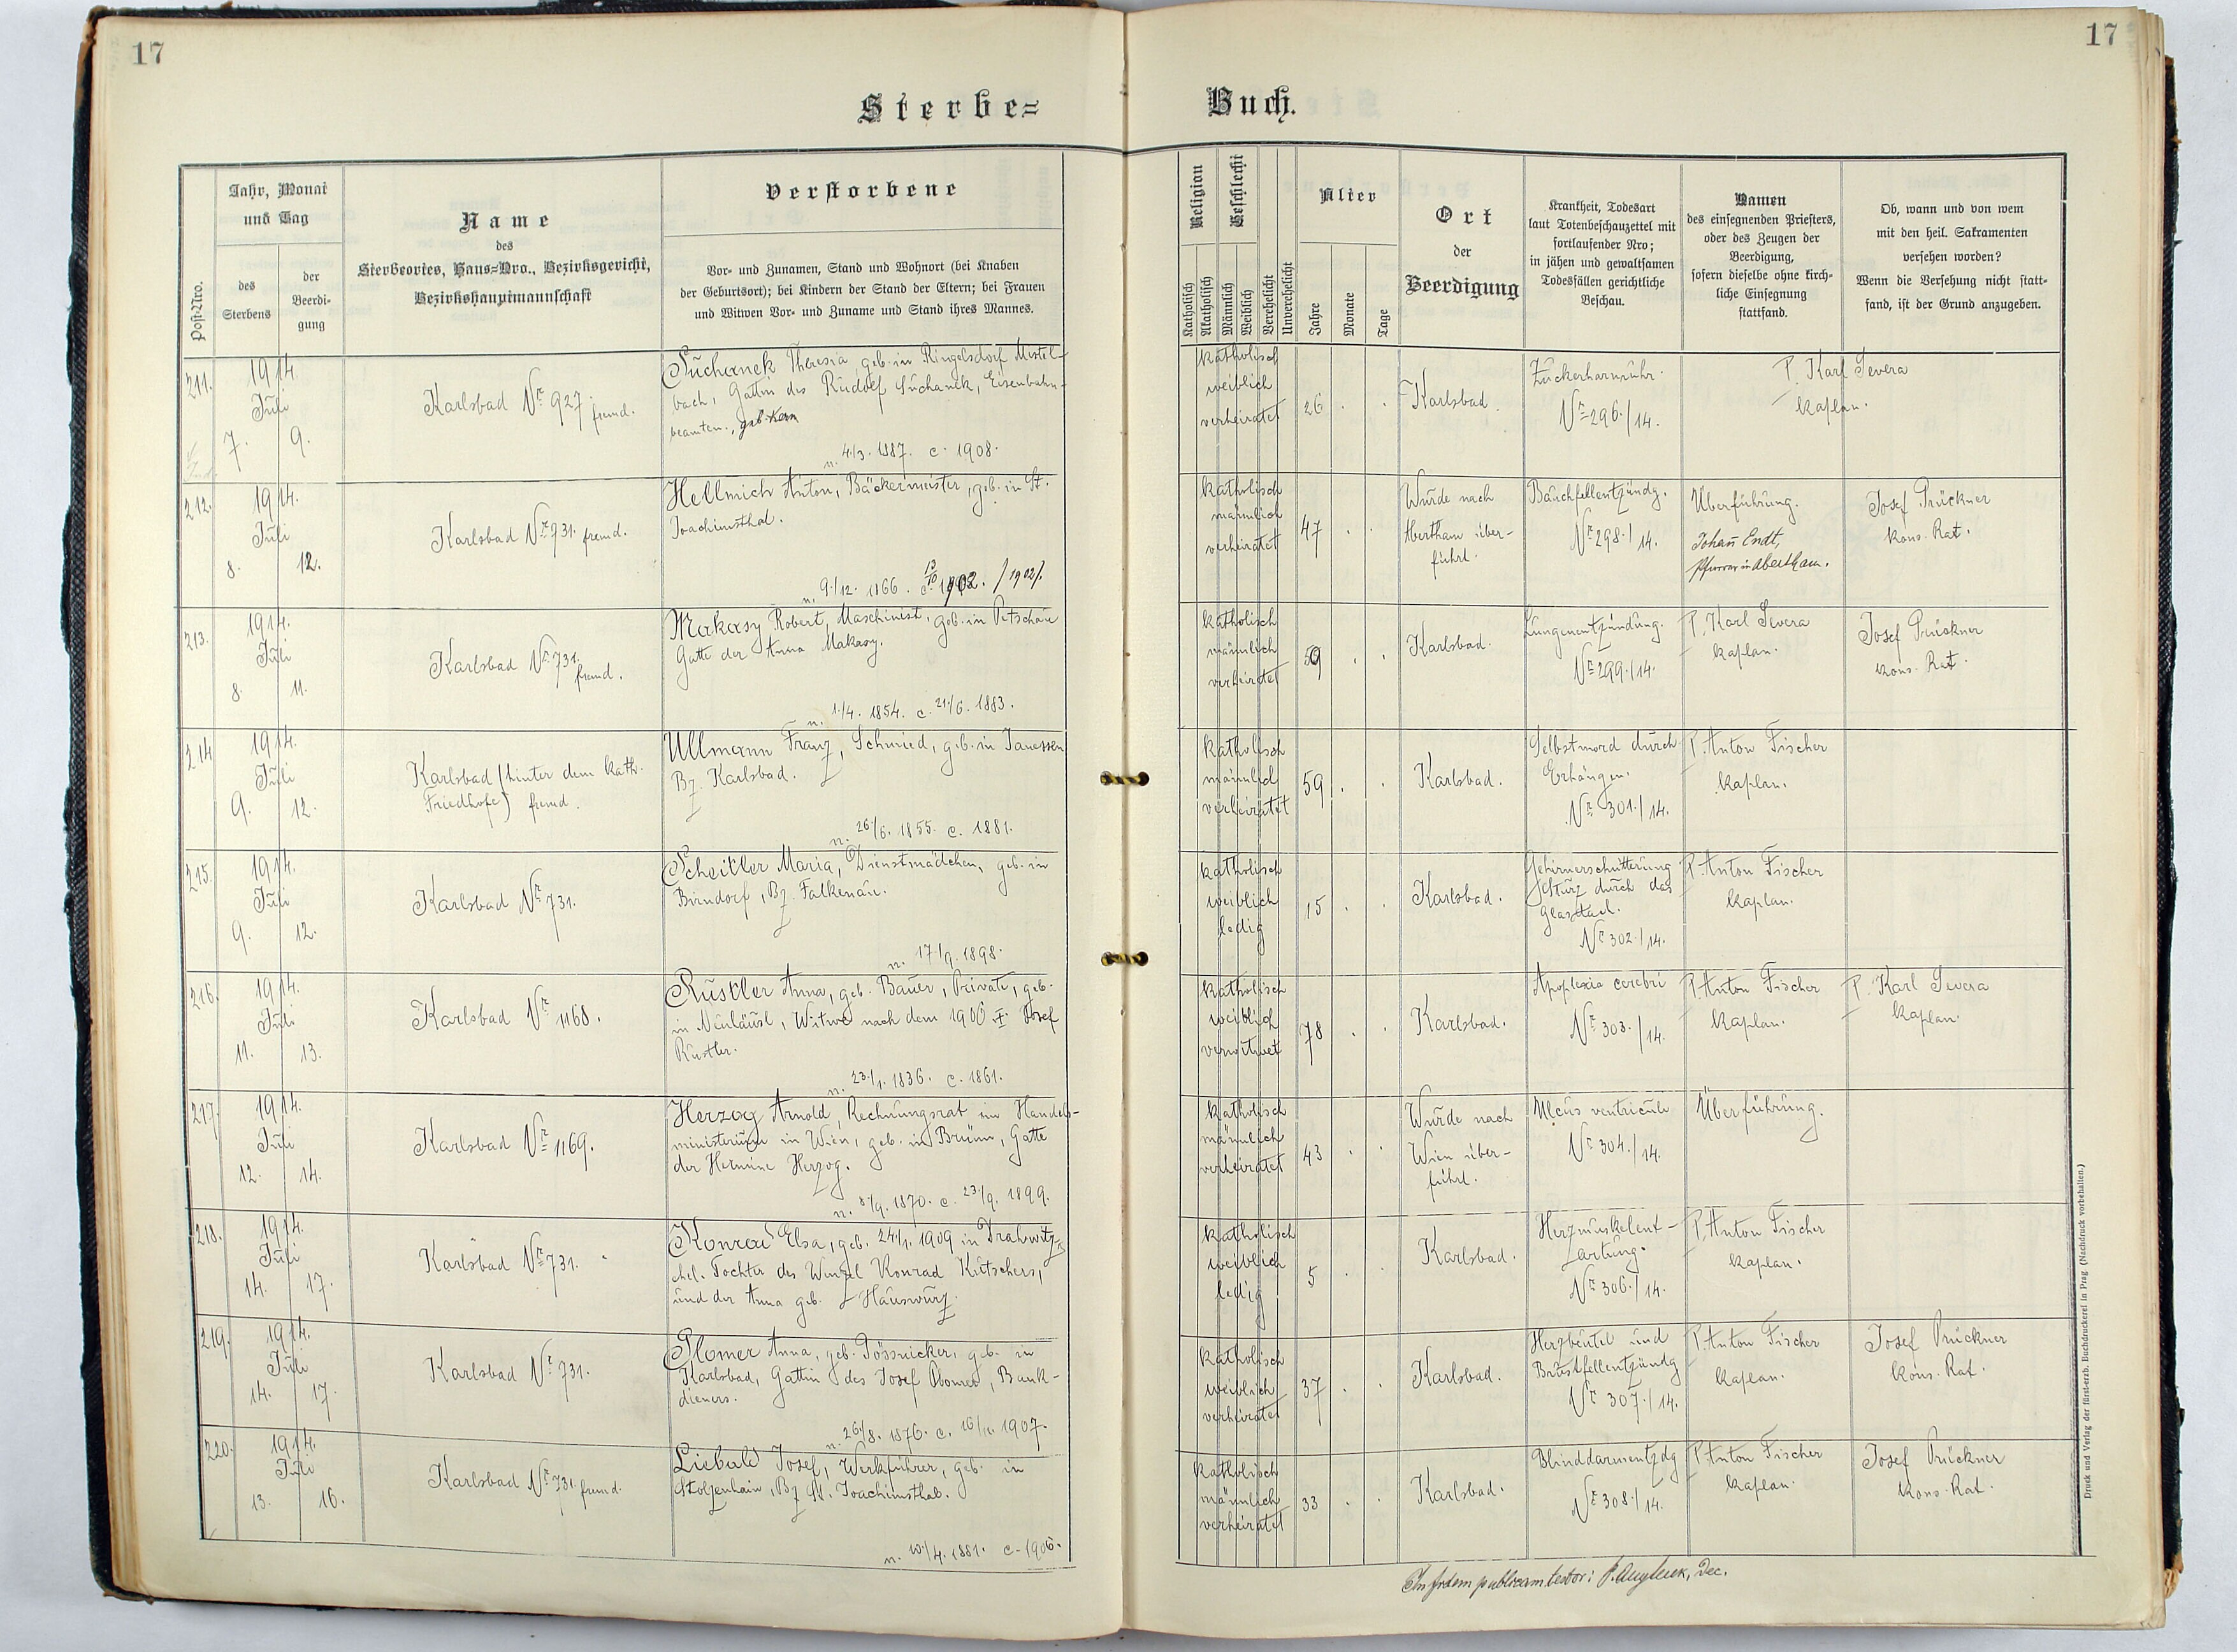 17
17
Sterbe=
Buch.
Post-Nro.
Jahr, Monat
und Tag
des
Sterbens
der
Beerdi-
gung
Name
des
Sterbeortes, Haus=Nro., Bezirksgericht,
Bezirkshauptmannschaft
Verstorbene
Vor- und Zunamen, Stand und Wohnort (bei Knaben
der Geburtsort); bei Kindern der Stand der Eltern; bei Frauen
und Witwen Vor- und Zuname und Stand ihres Mannes.
Religion
Katholisch
Akatholisch
Geschlecht
Männlich
Weiblich
Verehelicht
Unverehelicht
Alter
Jahre
Monate
Tage
Ort
der
Beerdigung
Krankheit, Todesart
laut Totenbeschauzettel mit
fortlaufender Nro;
in jähen und gewaltsamen
Todesfällen gerichtliche
Beschau.
Namen
des einsegnenden Priesters,
oder des Zeugen der
Beerdigung,
sofern dieselbe ohne kirch-
liche Einsegnung
stattfand.
Ob, wann und von wem
mit den heil. Sakramenten
versehen worden?
Wenn die Versehung nicht statt-
fand, ist der Grund anzugeben.
211.
1914.
Juli
7. 9.
Karlsbad Nr. 927 fremd.
Suchanek Theresia, geb. in Ringelsdorf Mistel-
bach, Gattin des Rudolf Suchanek, Eisenbahn-
beamten., geb. Kern
n. 4./3. 1887. c. 1908.
katholisch
weiblich
verheiratet
26 . .
Karlsbad.
Zuckerharnruhr.
Nr. 296./14.
P. Karl Severa
Kaplan.
212.
1914.
Juli
8. 12.
Karlsbad Nr. 731. fremd.
Hellmich Anton, Bäckermeister, geb. in St.
Joachimsthal.
n. 9./12. 1866. c. 13/10 1902. /1902/.
katholisch
männlich
verheiratet
47 . .
Wurde nach
Abertham über-
führt.
Bauchfellentzündg.
Nr. 298./14.
Überführung.
Johann Endt,
Pfarrer in Abertham.
Josef Prückner
kons. Rat.
213.
1914.
Juli
8. 11.
Karlsbad Nr. 731. fremd.
Makasy Robert, Maschinist, geb. in Petschau
Gatte der Anna Makasy.
n. 1./4. 1854. c. 21./6. 1883.
katholisch
männlich
verheiratet
59 . .
Karlsbad.
Lungenentzündung.
Nr. 299./14.
P. Karl Severa
Kaplan.
Josef Prückner
kons. Rat.
214
1914.
Juli
9. 12.
Karlsbad (hinter dem kath.
Friedhofe) fremd.
Ullmann Franz, Schmied, geb. in Janessen
Bz. Karlsbad.
n. 26./6. 1855. c. 1881.
katholisch
männlich
verheiratet
59 . .
Karlsbad.
Selbstmord durch
Erhängen.
Nr. 301./14.
P. Anton Fischer
Kaplan.
215.
1914.
Juli
9. 12.
Karlsbad Nr. 731.
Scheitler Maria, Dienstmädchen, geb. in
Birndorf, Bz. Falkenau.
n. 17./9. 1898.
katholisch
weiblich
ledig
15 . .
Karlsbad.
Gehirnerschütterung
Sturz durch das
Glasdach.
Nr. 302./14.
P. Anton Fischer
Kaplan.
216.
1914.
Juli
11. 13.
Karlsbad Nr. 1168.
Rustler Anna, geb. Bauer, Private, geb.
in Neuhäusl, Witwe nach dem 1900 † Josef
Rustler.
n. 23./1. 1836. c. 1861.
katholisch
weiblich
verwitwet
78 . .
Karlsbad.
Apoplexia cerebri
Nr. 303./14.
P. Anton Fischer
Kaplan.
P. Karl Severa
Kaplan.
217.
1914.
Juli
12. 14.
Karlsbad Nr. 1169.
Herzog Arnold, Rechnungsrat im Handels-
ministerium in Wien, geb. in Brünn, Gatte
der Hermine Herzog.
n. 8./9. 1870. c. 23./9. 1899.
katholisch
männlich
verheiratet
43 . .
Wurde nach
Wien über-
führt.
Ulcus ventriculi
Nr. 304./14.
Überführung.
218.
1914.
Juli
14. 17.
Karlsbad Nr. 731.
Konrad Elsa, geb. 24./1. 1909 in Drahowitz,
ehel. Tochter des Wenzel Konrad Kutschers,
und der Anna geb. Hauswurz.
katholisch
weiblich
ledig
5 . .
Karlsbad.
Herzmuskelent-
artung.
Nr. 306./14.
P. Anton Fischer
Kaplan.
219.
1914.
Juli
14. 17.
Karlsbad Nr. 731.
Plomer Anna, geb. Pössnicker, geb. in
Karlsbad, Gattin des Josef Plomer, Bank-
dieners.
n. 26./8. 1876. c. 16/11. 1907.
katholisch
weiblich
verheiratet
37 . .
Karlsbad.
Herzbeutel und
Brustfellentzündg
Nr. 307./14.
P. Anton Fischer
Kaplan.
Josef Prückner
kons. Rat.
220.
1914.
Juli
13. 16.
Karlsbad Nr. 731. fremd.
Liebald Josef, Werkführer, geb. in
Stolzenhain, Bz. St. Joachimsthal.
n. 10./4. 1881. c. 1906.
katholisch
männlich
verheiratet
33 . .
Karlsbad.
Blinddarmentzdg
Nr. 308./14.
P. Anton Fischer
Kaplan.
Josef Prückner
kons. Rat.
In fidem publicam testor: Dec.
Druck und Verlag der fürst-erzb. Buchdruckerei in Prag. (Nachdruck vorbehalten.)